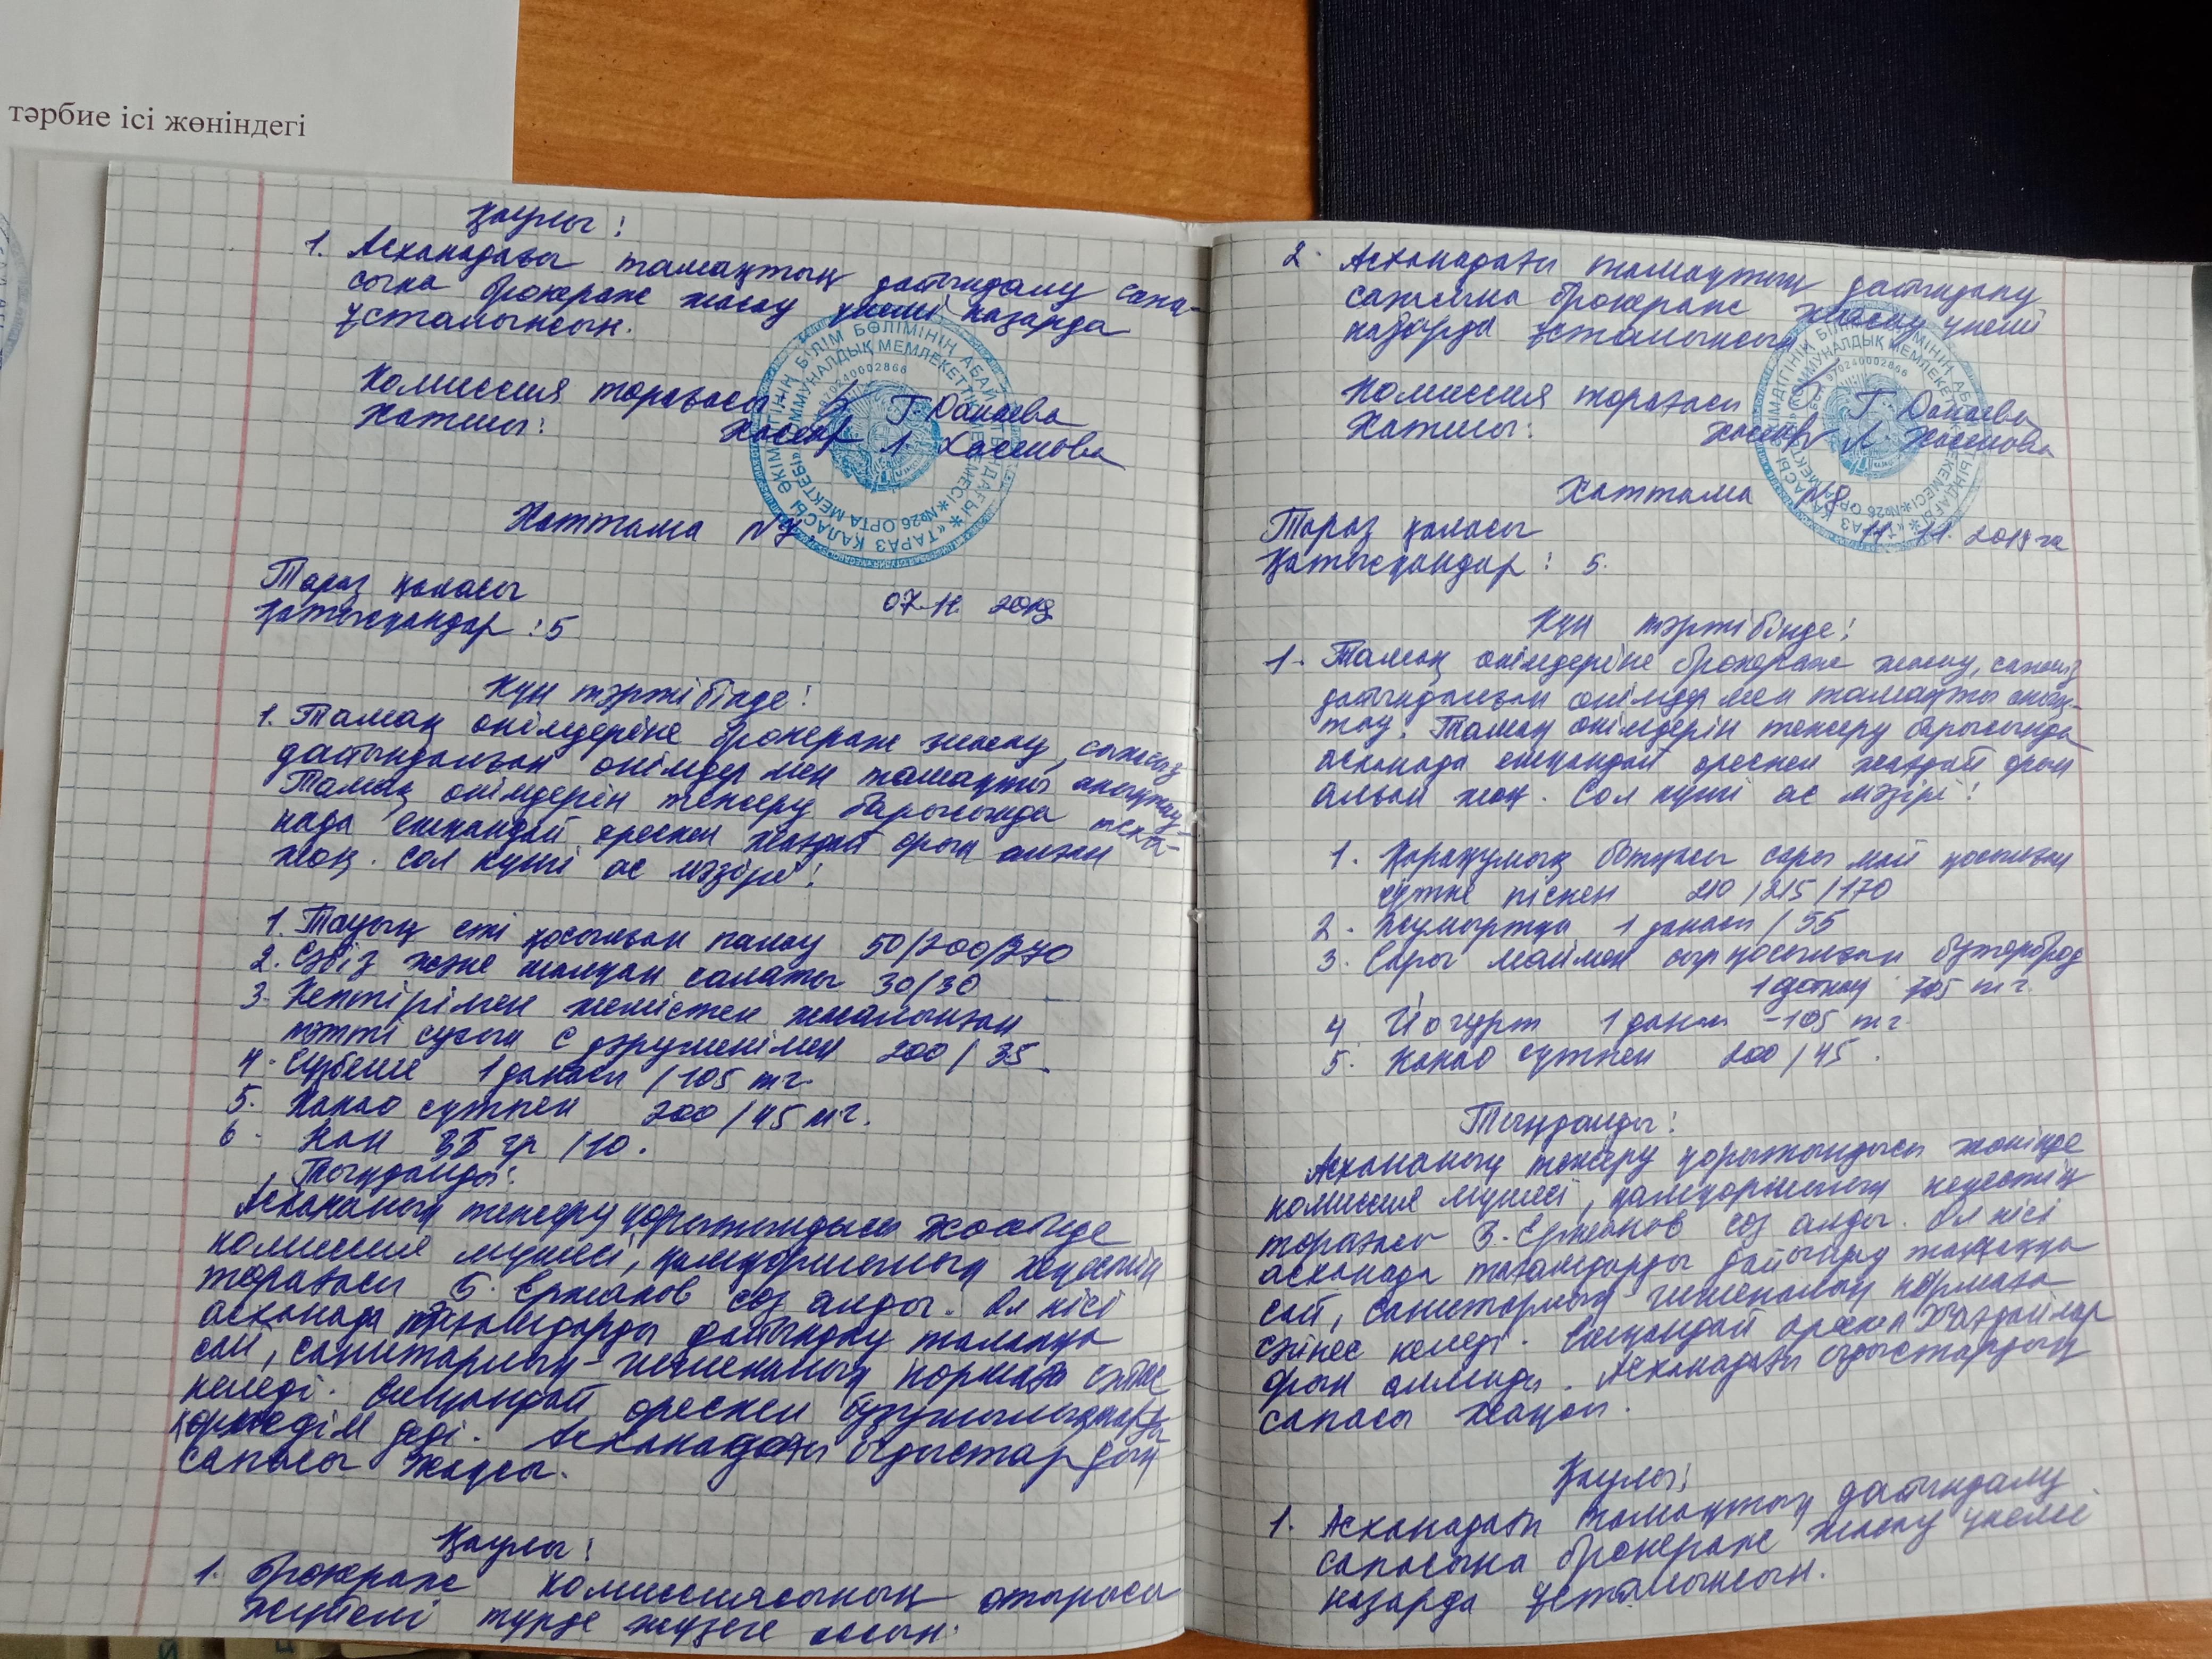 тәрбие ісі жөніндегі
Қаулы:
1. Асханадағы тамақтың дайындалу сапа-
сына брокераж жасау үнемі назарда
ұсталынсын.
Комиссия төрағасы Г. Данаева
Хатшы: Хасен Л. Хасенова
Хаттама №7.
Тараз қаласы
07.11. 2019
Қатысқандар: 5
Күн тәртібінде:
1. Тамақ өнімдеріне брокераж жасау, сапасыз
дайындалған өнімдер мен тамақты анықтау.
Тамақ өнімдерін тексеру барысында асха-
нада ешқандай өрескел жағдай орын алған
жоқ. Сол күнгі ас мәзірі:
1. Тауық еті қосылған палау 50/200/370
2. Сәбіз және шалқан салаты 30/30
3. Кептірілген жемістен жасалынған
тәтті сусын С дәруменімен 200/35
4. Сүзбеше 1 данасы /105 тг.
5. Какао сүтпен 200/45 тг.
6. Нан гр /10.
Тыңдалды:
Асхананың тексеру қорытындысы жөнінде
комиссия мүшесі, қамқоршылық кеңестің
төрағасы Б. Ержанов сөз алды. Ол кісі
асханада тағамдарды дайындау талапқа
сай, санитарлық-гигиеналық нормаға сәйкес
келеді. Ешқандай өрескел бұзушылықтарды
көрмедім деді. Асханадағы ыдыстардың
сапасы жақсы.
Қаулы:
1. Брокераж комиссиясының отырысы
жүйелі түрде жүзеге ассын.
2. Асханадағы тамақтың дайындалу
сапасына брокераж жасау үнемі
назарда ұсталынсын.
Комиссия төрағасы Г. Данаева
Хатшы: Хасен Л. Хасенова
Хаттама №8
Тараз қаласы 11. 11. 2019
Қатысқандар: 5.
Күн тәртібінде:
1. Тамақ өнімдеріне брокераж жасау, сапасыз
дайындалған өнімдер мен тамақты анық-
тау. Тамақ өнімдерін тексеру барысында
асханада ешқандай өрескел жағдай орын
алған жоқ. Сол күнгі ас мәзірі:
1. Қарақұмық ботқасы сары май қосылған
сүтке піскен 210/215/170
2. Жұмыртқа 1 данасы /55
3. Сары маймен сыр қосылған бутерброд
1 данасы 105 тг.
4. Йогурт 1 данасы -105 тг.
5. Какао сүтпен 200/45.
Тыңдалды:
Асхананың тексеру қорытындысы жөнінде
комиссия мүшесі, қамқоршылық кеңестің
төрағасы Б. Ержанов сөз алды. Ол кісі
асханада тағамдарды дайындау талапқа
сай, санитарлық-гигиеналық нормаға
сәйкес келеді. Ешқандай өрескел жағдайлар
орын алмады. Асханадағы ыдыстардың
сапасы жақсы.
Қаулы:
1. Асханадағы тамақтың дайындалу
сапасына брокераж жасау үнемі
назарда ұсталынсын.